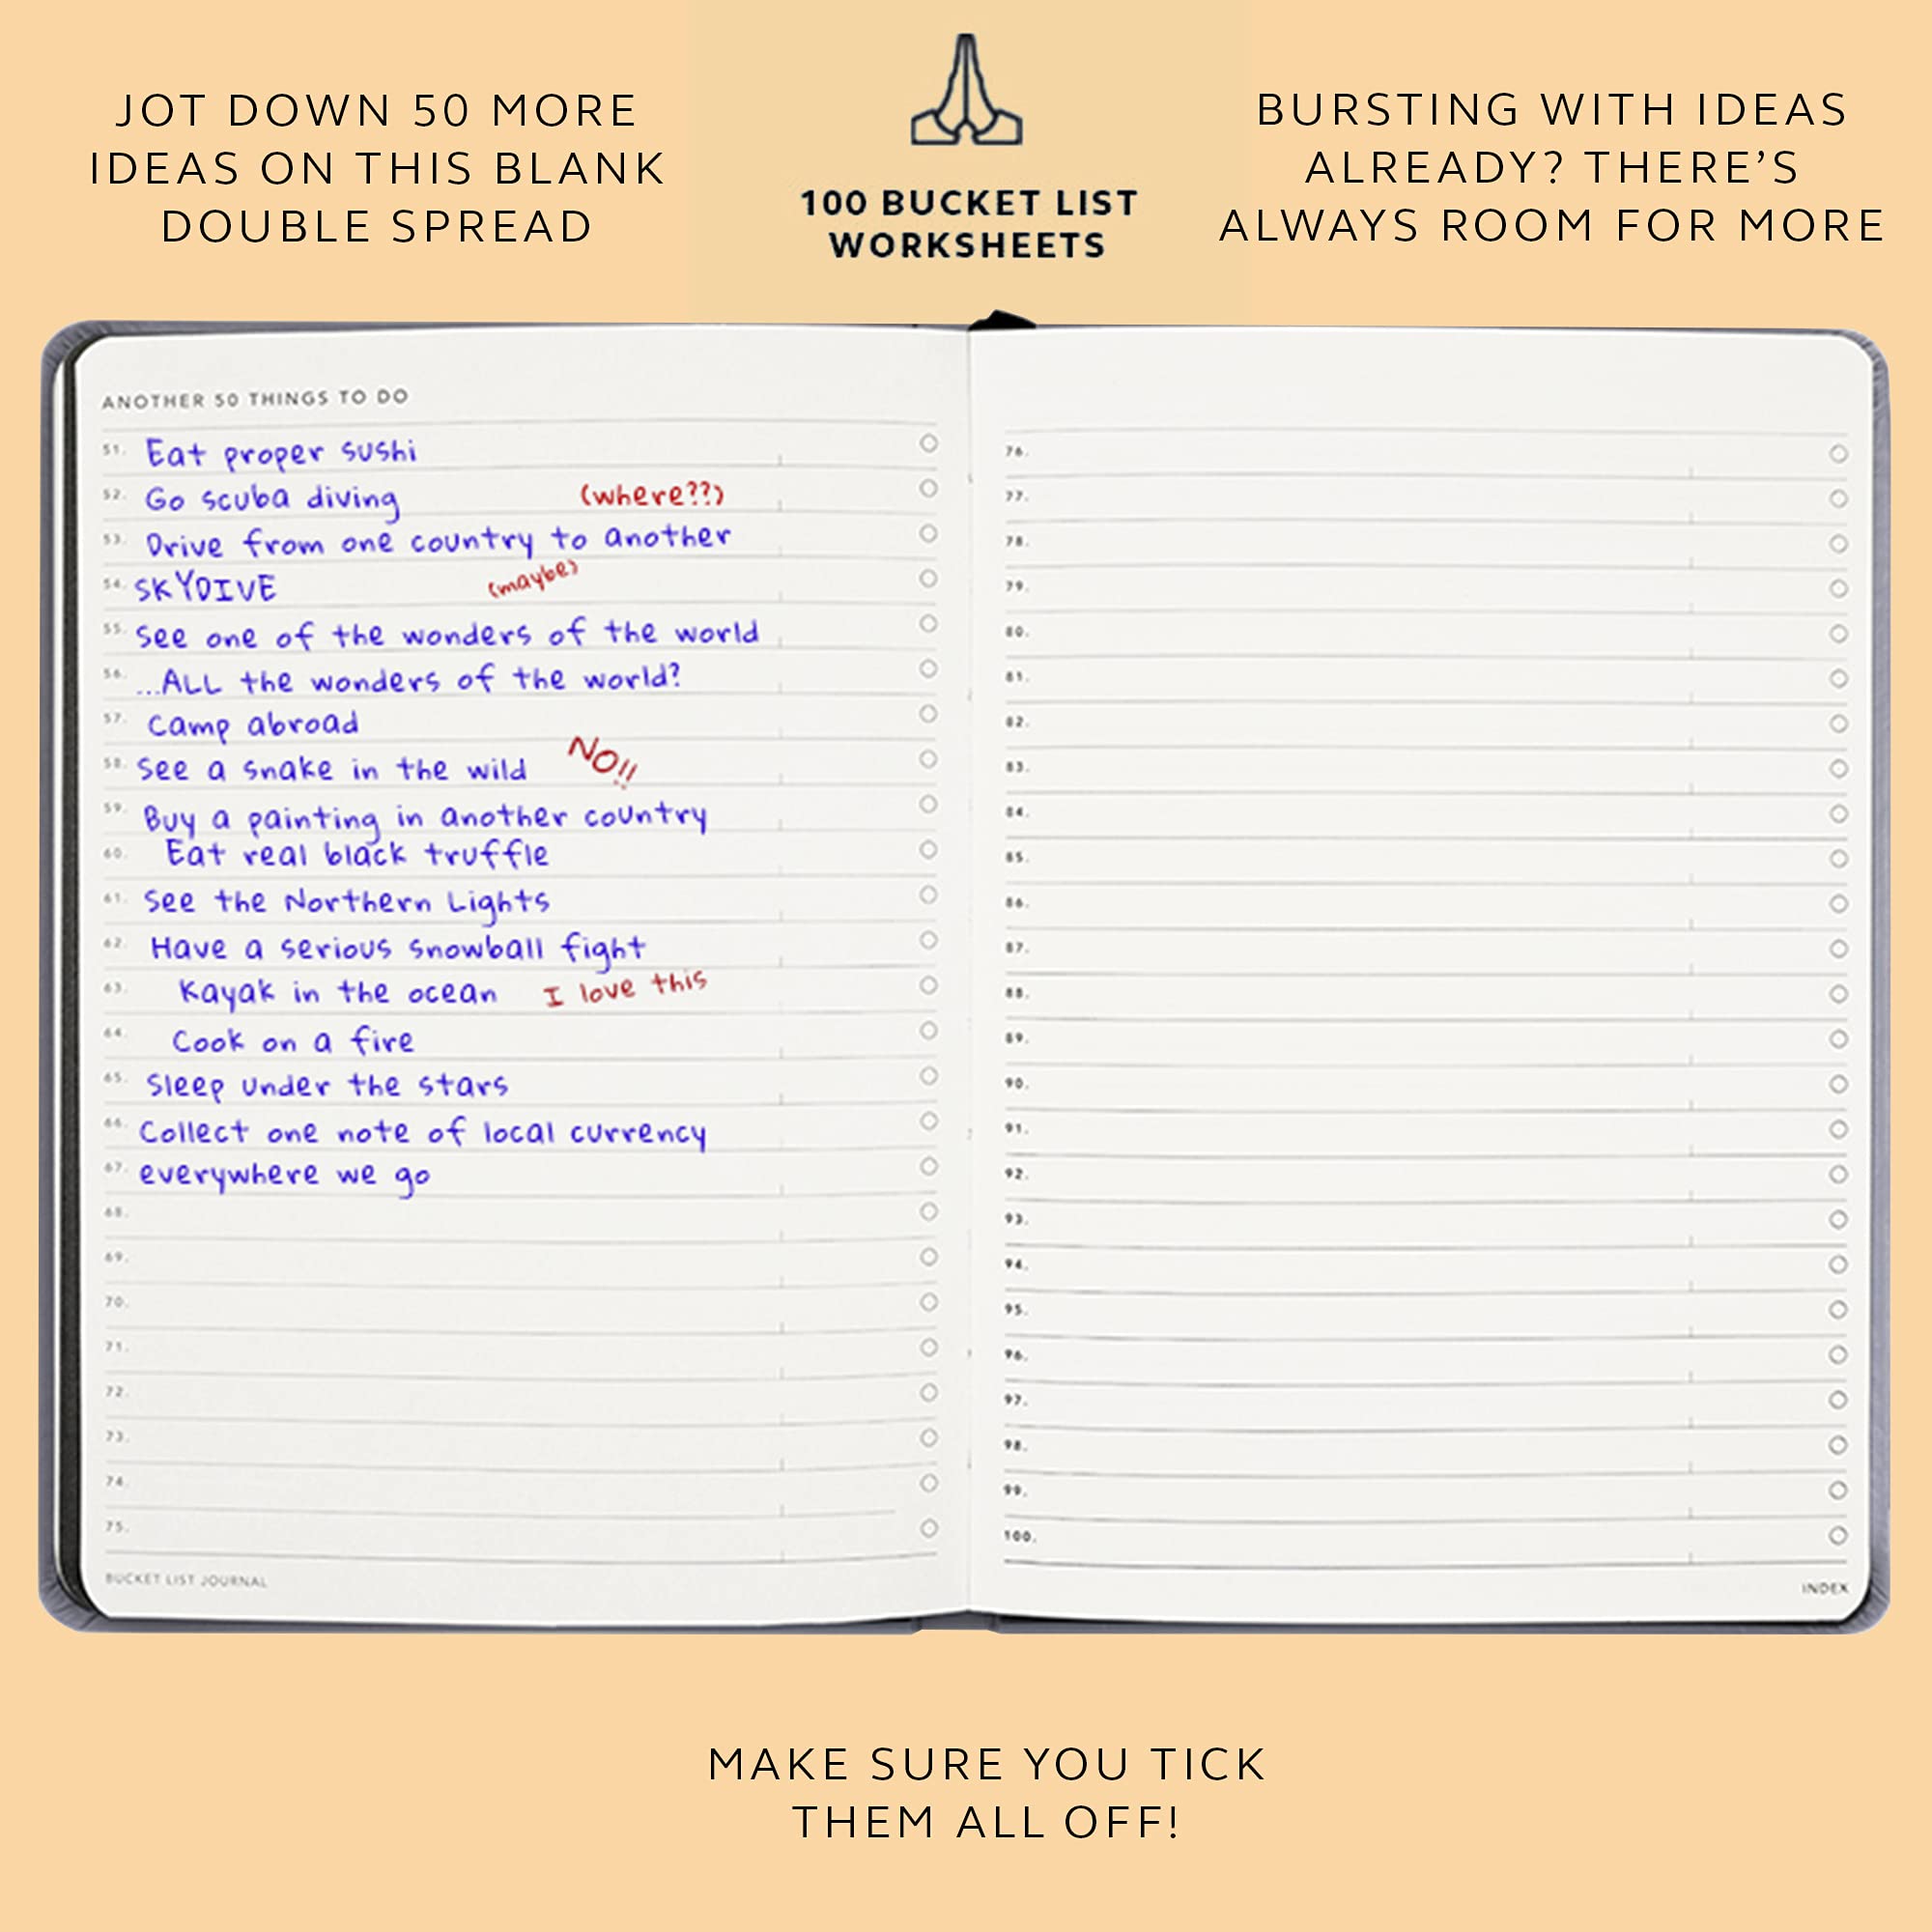 JOT DOWN 50 MORE
IDEAS ON THIS BLANK
DOUBLE SPREAD
100 BUCKET LIST
WORKSHEETS
BURSTING WITH IDEAS
ALREADY? THERE'S
ALWAYS ROOM FOR MORE
ANOTHER 50 THINGS TO DO
51. Eat proper sushi
52. Go scuba diving (where??)
53. Drive from one country to another
54. SKYDIVE (maybe)
55. See one of the wonders of the world
56. ...ALL the wonders of the world?
57. Camp abroad
58. See a snake in the wild NO!!
59. Buy a painting in another country
60. Eat real black truffle
61. See the Northern Lights
62. Have a serious snowball fight
63. Kayak in the ocean I love this
64. Cook on a fire
65. Sleep under the stars
66. Collect one note of local currency
67. everywhere we go
68.
69.
70.
71.
72.
73.
74.
75.
BUCKET LIST JOURNAL
76.
77.
78.
79.
80.
81.
82.
83.
84.
85.
86.
87.
88.
89.
90.
91.
92.
93.
94.
95.
96.
97.
98.
99.
100.
INDEX
MAKE SURE YOU TICK
THEM ALL OFF!